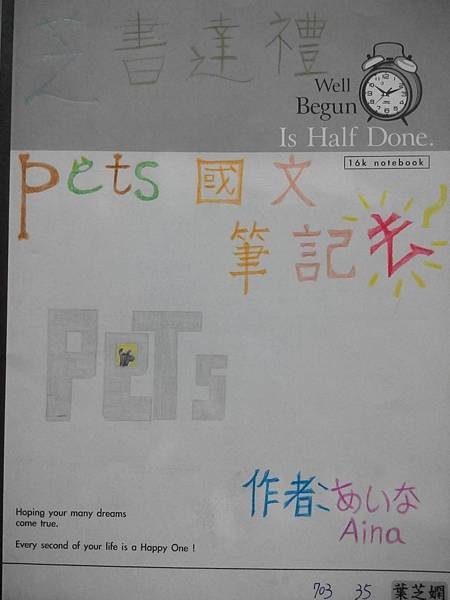 芝書達禮
Well
Begun
Is Half Done.
16k notebook
pets 國文
筆記
PeTs
作者:あいな
Aina
Hoping your many dreams
come true.
Every second of your life is a Happy One !
703 35 葉芝嫻